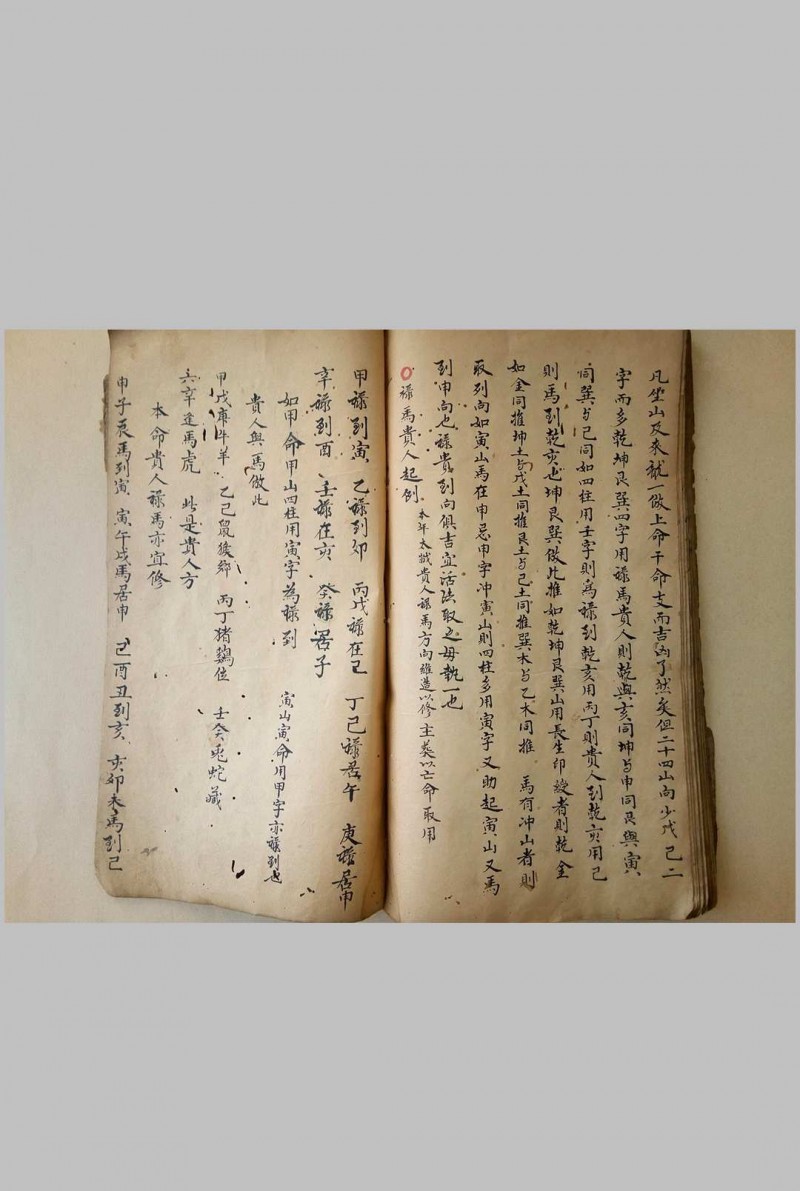 凡坐山及來龍一做上命干命支而吉凶了然矣但二十四山向少戊己二
字而多乾坤艮巽四字用祿馬貴人則乾與亥同坤与申同艮與寅
同巽与巳同如四柱用壬字則為祿到乾亥用丙丁則貴人到乾亥用巳
則馬到乾亥也坤艮巽倣此推如乾坤艮巽山用長生印綬者則乾金
如金同推坤土与戊土同推艮土与己土同推巽木与乙木同推 馬有冲山者則
取列向如寅山馬在申忌申字冲寅山則四柱多用寅字又助起寅山又馬
到申向也祿貴到向俱吉宜活法取之毋執一也
○祿馬貴人起例 本年太歲貴人祿馬方向維造以修 主葬以亡命取用
甲祿到寅 乙祿到卯 丙戊祿在巳 丁己祿居午 庚祿居申
辛祿到酉 壬祿在亥 癸祿居子
如甲命甲山四柱用寅字為祿到 寅山寅命用甲字亦祿到也
貴人與馬倣此
甲戊庚牛羊 乙己鼠猴鄉 丙丁猪鷄位 壬癸兎蛇藏
六辛逢馬虎 此是貴人方
本命貴人祿馬亦宜修
申子辰馬到寅 寅午戌馬居申 巳酉丑到亥 亥卯未馬到巳